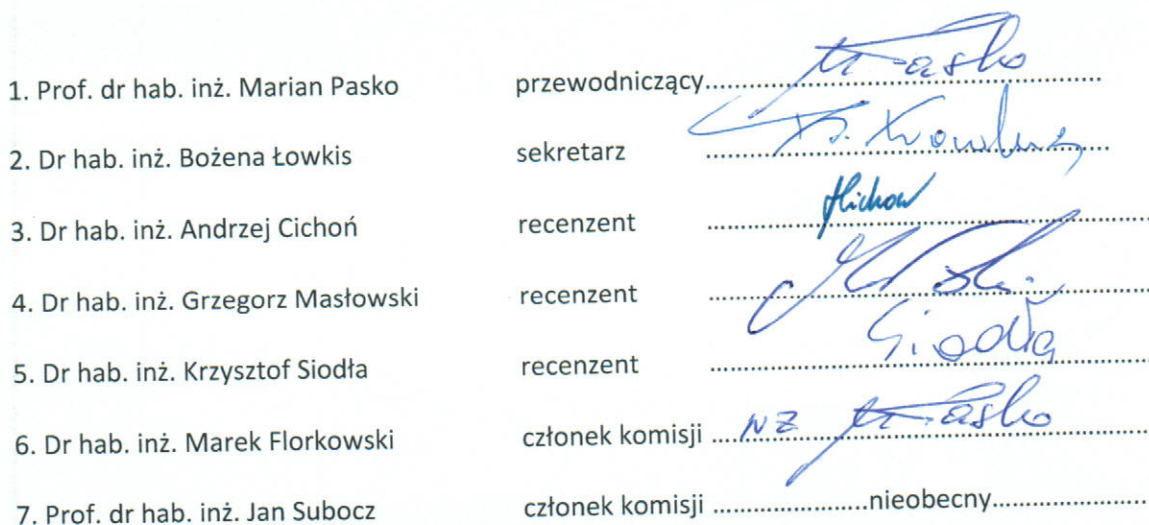 1. Prof. dr hab. inż. Marian Pasko przewodniczący.......... M Pasko
2. Dr hab. inż. Bożena Łowkis sekretarz ..........
3. Dr hab. inż. Andrzej Cichoń recenzent ..........
4. Dr hab. inż. Grzegorz Masłowski recenzent ..........
5. Dr hab. inż. Krzysztof Siodła recenzent .......... Siodła
6. Dr hab. inż. Marek Florkowski członek komisji .......... NZ M Pasko
7. Prof. dr hab. inż. Jan Subocz członek komisji ..........nieobecny..........